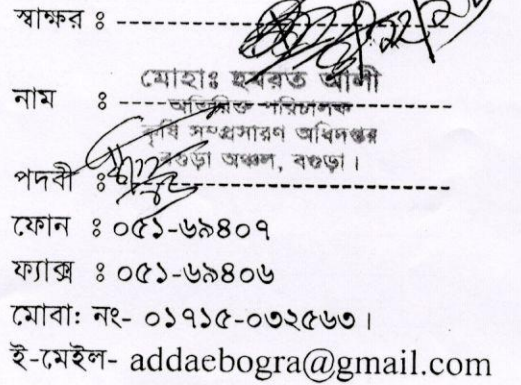 স্বাক্ষর ঃ
মোহাঃ হযরত আলী
নাম ঃ
অতিরিক্ত পরিচালক
কৃষি সম্প্রসারণ অধিদপ্তর
বগুড়া অঞ্চল, বগুড়া।
পদবী ঃ
ফোন ঃ ০৫১-৬৯৪০৭
ফ্যাক্স ঃ ০৫১-৬৯৪০৬
মোবা: নং- ০১৭১৫-০৩২৫৬৩।
ই-মেইল- addaebogra@gmail.com